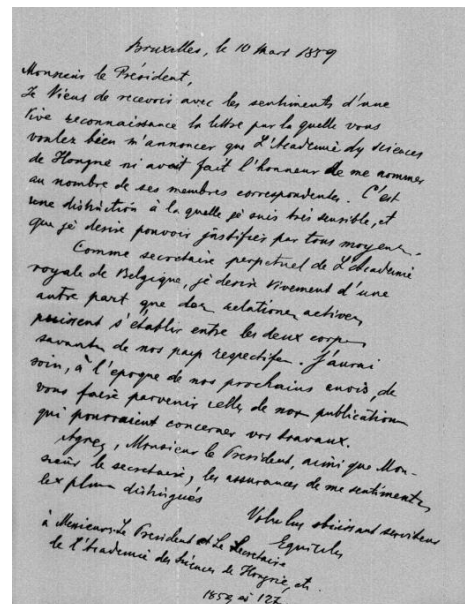 Bruxelles, le 10 Mars 1859
Monsieur le Président,
Je Viens de recevoir avec les sentiments d'une
vive reconnaissance la lettre par la quelle vous
voulez bien m'annoncer que L'Academie des sciences
de Hongrie m'avait fait l'honneur de me nommer
au nombre de ses membres correspondents. C'est
une distinction à la quelle je suis très sensible, et
que je desire pouvoir justifier par tous moyens.
Comme secretaire perpetuel de L'Academie
royale de Belgique, je desire Vivement d'une
autre part que des relations actives
puissent s'établir entre les deux corps
savants de nos pays respectifs. J'aurai
soin, à l'epoque de nos prochains envois, de
vous faire parvenir celles de nos publications
qui pourraient concerner vos travaux.
Agreez, Monsieur le President, ainsi que Mon-
sieur le secretaire, les assurances de me sentiments
les plus distingués
Votre obeissant serviteur
à Messieurs Le President et Le Secretaire
de l'Academie des Sciences de Hongrie, etc.
1859 127